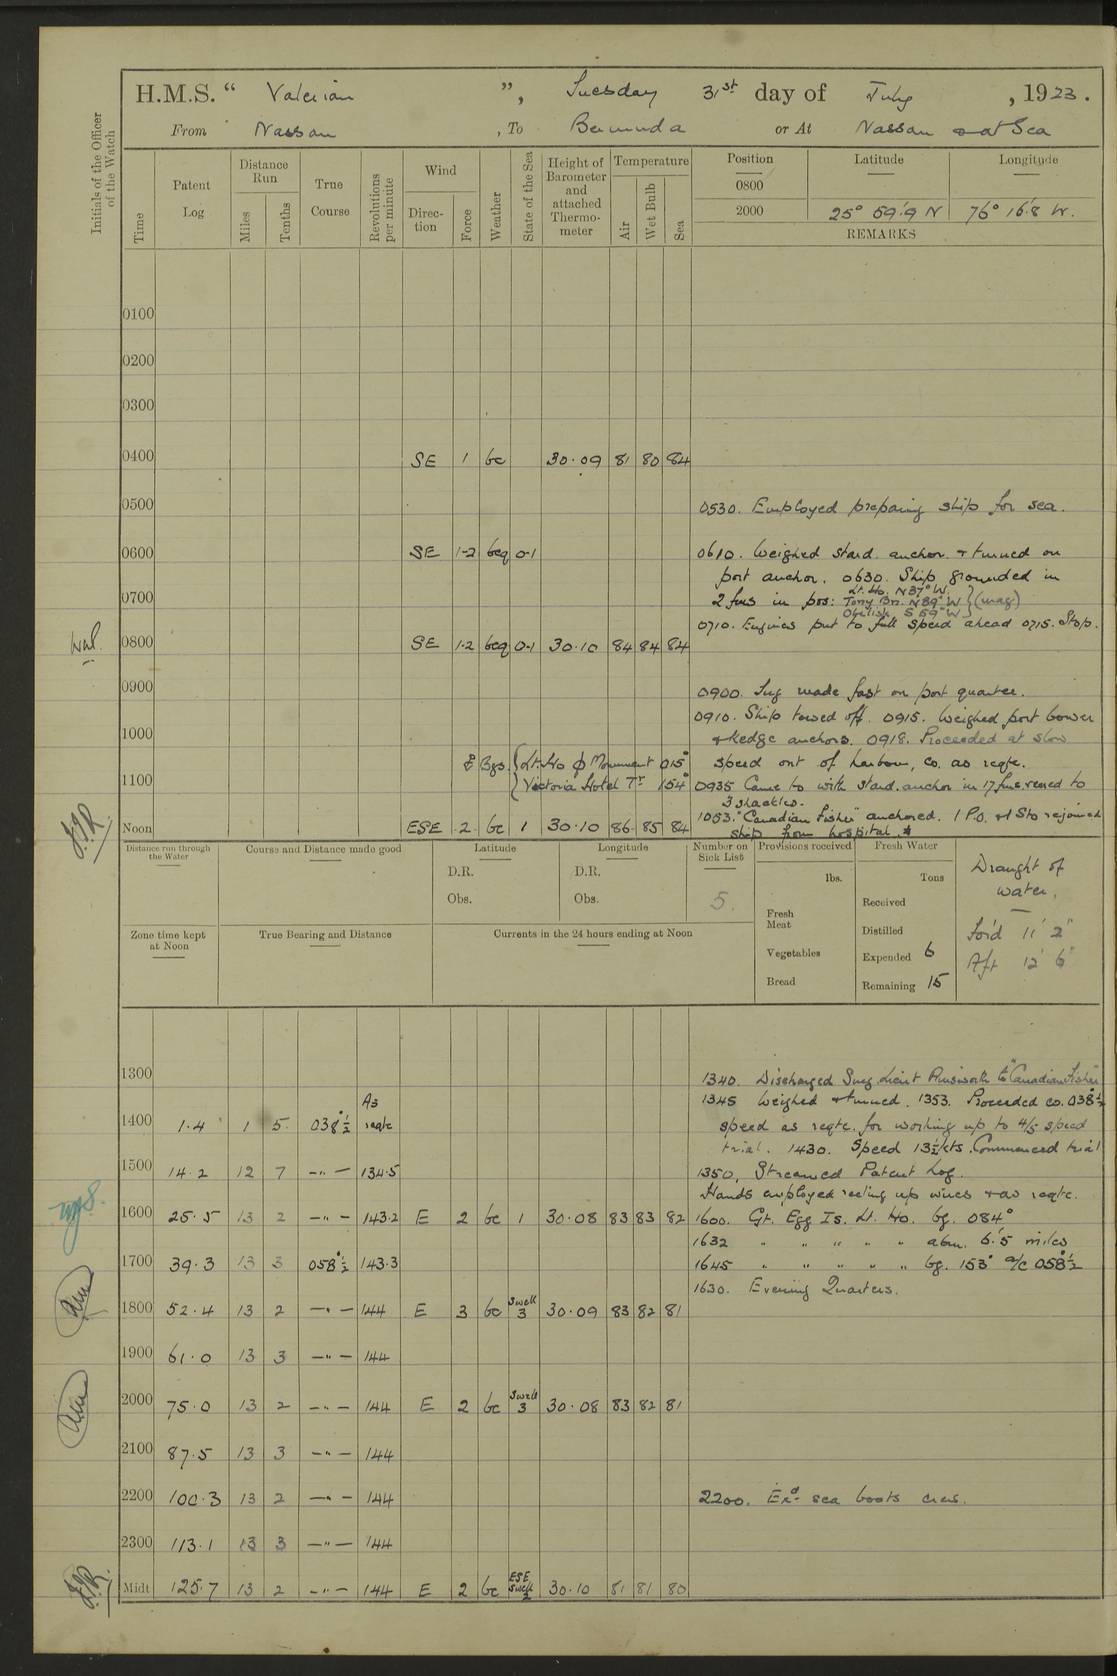 H.M.S. “ Valerian ”, Tuesday 31st day of July , 1923.
From Nassau , To Bermuda or At Nassau & at Sea
Initials of the Officer of the Watch
Time
Patent Log
Distance Run
Miles
Tenths
True Course
Revolutions per minute
Wind
Direction
Force
Weather
State of the Sea
Height of Barometer and attached Thermometer
Temperature
Air
Wet Bulb
Sea
Position
Latitude
Longitude
0800
2000 25° 59'.9 N 76° 16'.8 W.
REMARKS
0100
0200
0300
0400 SE 1 bc 30.09 81 80 84
0500
0530. Employed preparing ship for sea.
0600 SE 1-2 bcq 0-1
0610. Weighed stard. anchor & turned on
port anchor. 0630. Ship grounded in
0700
2 fms in pos: Lt. Ho. N37°W. Tony Bn. N89°W Obelisk S 59°W } (mag)
0710. Engines put to full speed ahead 0715. Stop.
0800 SE 1-2 bcq 0-1 30.10 84 84 84
0900
0900. Tug made fast on port quarter.
0910. Ship towed off. 0915. Weighed port bower
1000
& kedge anchors. 0918. Proceeded at slow
Bgs. { Lt. Ho ϕ Monument 015° speed out of harbour, co. as reqte.
1100
Victoria Hotel Tr 154° 0935 Came to with stard. anchor in 17 fms. veered to
3 shackles.
1053. "Canadian Fisher" anchored. 1 P.O. & 1 Sto rejoined
Noon ESE 2 bc 1 30.10 86 85 84
ship from hospital.
Distance run through the Water
Course and Distance made good
Latitude
D.R.
Obs.
Longitude
D.R.
Obs.
Number on Sick List
5.
Provisions received
lbs.
Fresh Meat
Vegetables
Bread
Fresh Water
Tons
Received
Distilled
Expended 6
Remaining 15
Draught of
water.
For'd 11' 2"
Aft 12' 6"
Zone time kept at Noon
True Bearing and Distance
Currents in the 24 hours ending at Noon
1300
1340. Discharged Surg Lieut Ainsworth to "Canadian Fisher"
1345 Weighed & turned. 1353. Proceeded co. 038°½
1400 1.4 1 5 038°½ As reqte
speed as reqte. for working up to 4/5 speed
trial. 1430. Speed 13½kts. Commenced trial
1500 14.2 12 7 —"— 134.5
1350. Streamed Patent Log.
Hands employed reeling up wires & as reqte.
1600 25.5 13 2 —"— 143.2 E 2 bc 1 30.08 83 83 82
1600. Gt. Egg Is. Lt. Ho. bg. 084°
1632 " " " " " abm. 6'.5 miles
1700 39.3 13 3 058°½ 143.3
1645 " " " " " bg. 153° a/c 058°½
1630. Evening Quarters.
1800 52.4 13 2 —"— 144 E 3 bc Swell 3 30.09 83 82 81
1900 61.0 13 3 —"— 144
2000 75.0 13 2 —"— 144 E 2 bc Swell 3 30.08 83 82 81
2100 87.5 13 3 —"— 144
2200 100.3 13 2 —"— 144
2200. Exd. sea boats crews.
2300 113.1 13 3 —"— 144
Midt 125.7 13 2 —"— 144 E 2 bc ESE Swell 2 30.10 81 81 80